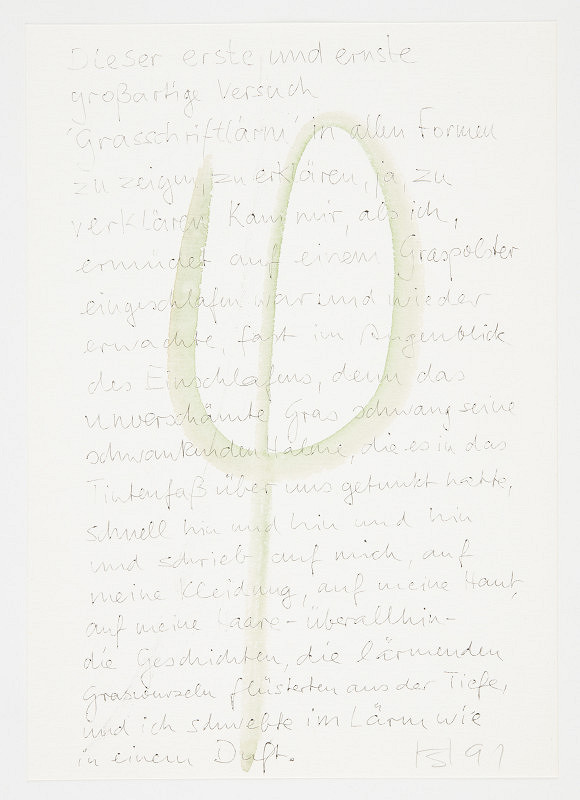 Dieser erste und ernste
großartige Versuch
'Grasschriftlärm' in allen Formen
zu zeigen, zu erklären, ja, zu
verklären kam mir, als ich,
ermüdet auf einem Graspolster
eingeschlafen war und wieder
erwachte, fast im Augenblick
des Einschlafens, denn das
unverschämte Gras schwang seine
schwankenden Halme, die es in das
Tintenfaß über uns getunkt hatte,
schnell hin und hin und hin
und schrieb auf mich, auf
meine Kleidung, auf meine Haut,
auf meine Haare - überallhin -
die Geschichten, die lärmenden
Graswurzeln flüsterten aus der Tiefe,
und ich schwebte im Lärm wie
in einem Duft. 91